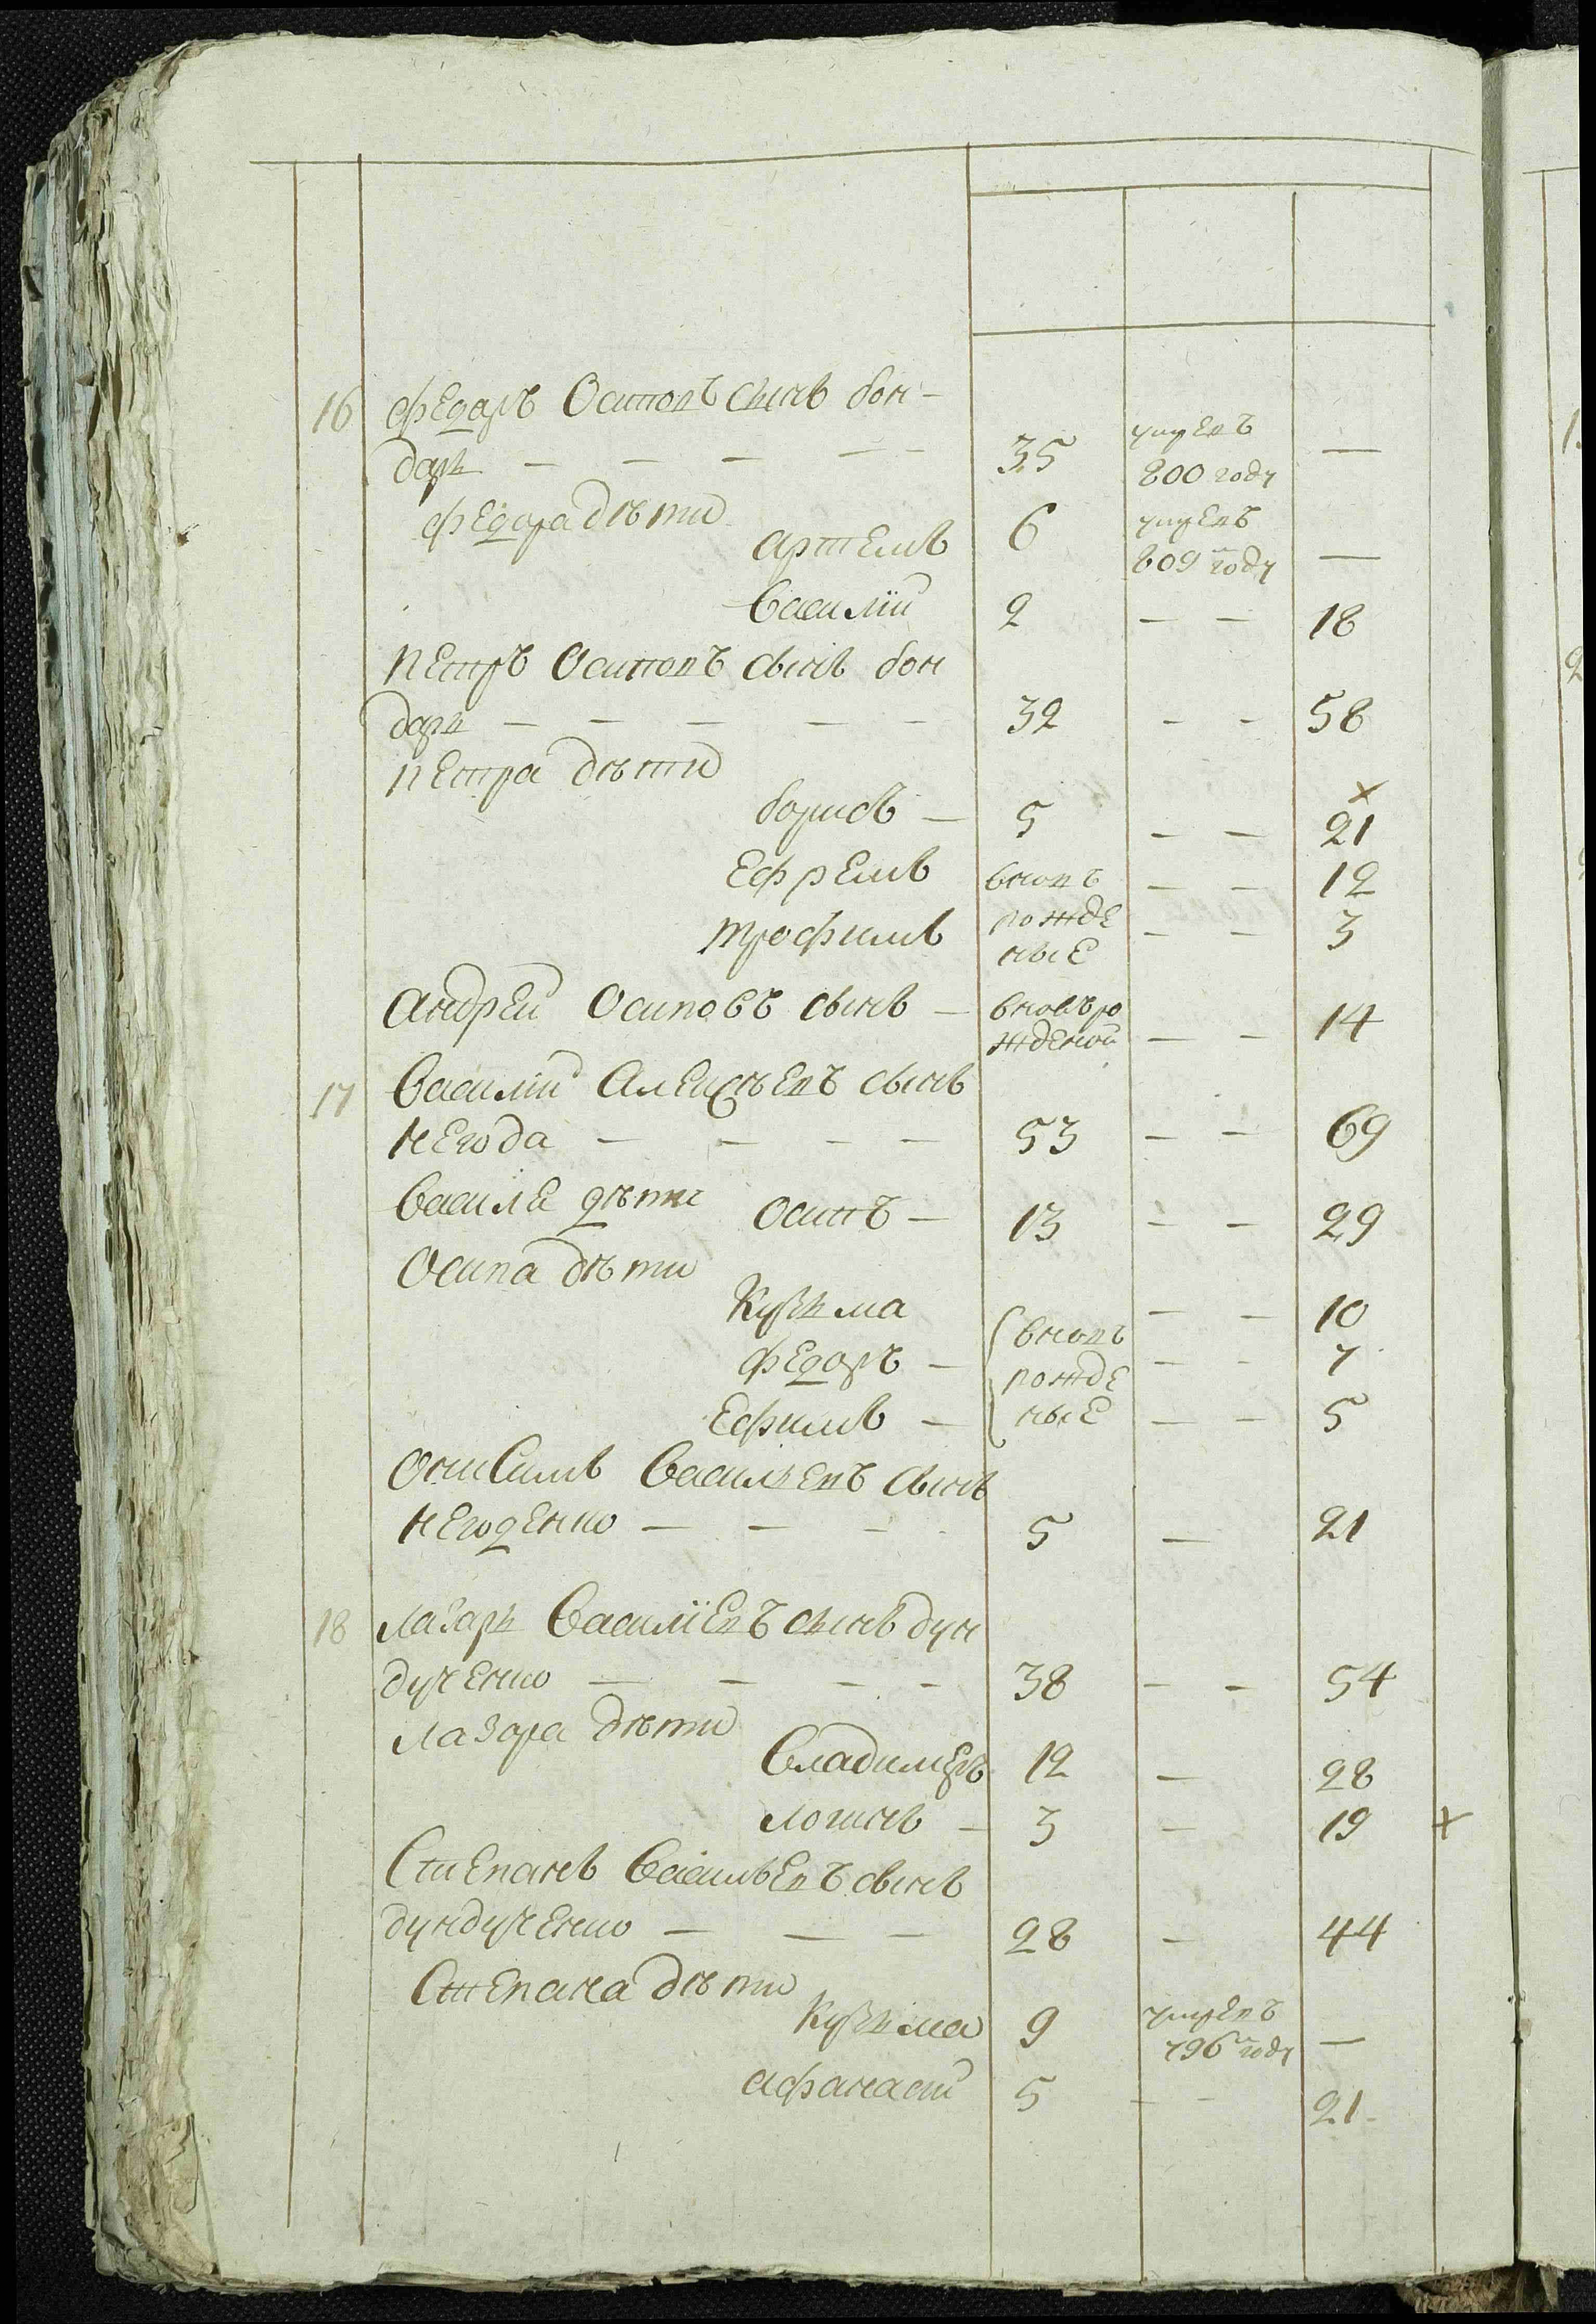 16 Федоръ Осиповъ сынъ бон-
дарь — — — — — 35 умеръ 800 году —
Федора дѣти
Артемъ 6 умеръ 809 году —
Василій 2 — — 18
Петръ Осиповъ сынъ бон
дарь — — — — — 32 — — 58
Петра дѣти
Борисъ — 5 — — 21 ×
Ефремъ вновъ — — 12
Трофимъ рожде — — 3
ные
Андрей Осиповъ сынъ — вновъ ро
жденой — — 14
17 Василій Алексѣевъ сынъ
Негода — — — — 53 — — 69
Василя дѣти Осипъ — 13 — — 29
Осипа дѣти
Кузьма — — 10
вновъ
Федоръ — — — 7
рожде
Ефимъ — ные — — 5
Онисимъ Васильевъ сынъ
Негоденко — — — 5 — 21
18 Лазарь Василіевъ сынъ дун
дученко — — — — 38 — — 54
Лазара дѣти
Владимеръ 12 — 28
Логинъ — 3 — 19 ×
Степанъ Васильевъ сынъ
дундученко — — — 28 — 44
Степана дѣти
Кузьма 9 умеръ 796 году —
Афанасій 5 — — 21